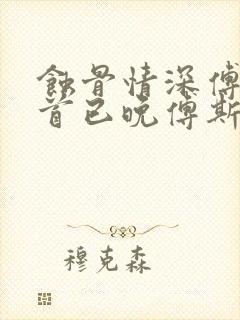 蝕骨情深傅
首已晚傅斯
穆克森